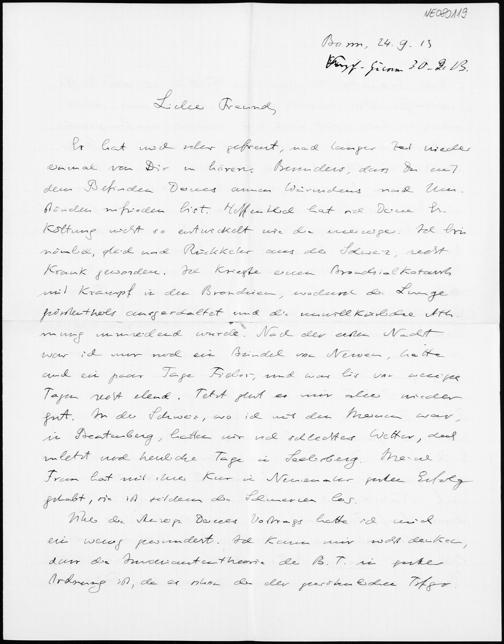 NE080119
Bonn, 24. 9. 13
30. 9. 13.
Lieber Freund,
Es hat mich sehr gefreut, nach langer Zeit wieder
einmal von Dir zu hören. Besonders, dass Du mit
dem Befinden Deines armen nach Um-
ständen zufrieden bist. Hoffentlich hat sich Deine Er-
kältung nicht so entwickelt wie die meinige. Ich bin
nämlich, gleich nach Rückkehr aus der Schweiz, recht
krank geworden. Ich kriegte einen Bronchialkatarrh
mit Krampf in den Bronchien, wodurch die Lunge
grösstenteils ausgeschaltet und die unwillkürliche Ath-
mung unzureichend wurde. Nach der ersten Nacht
war ich nur noch ein Bündel von Nerven, hatte
auch ein paar Tage Fieber, und war bis vor wenigen
Tagen recht elend. Jetzt geht es mir aber wieder
gut. In der Schweiz, wo ich mit den Meinen war,
in Beatenberg, hatten wir viel schlechtes Wetter, doch
zuletzt noch herrliche Tage in Seelisberg. Meine
Frau hat mit ihrer Kur in Neuenahr guten Erfolg
gehabt, sie ist seitdem die Schmerzen los.
Über die Anzeige Deines Vortrags hatte ich mich
ein wenig gewundert. Ich kann mir nicht denken,
dass die Invariantentheorie der B. T. in guter
Ordnung ist, da es schon die der gewöhnlichen